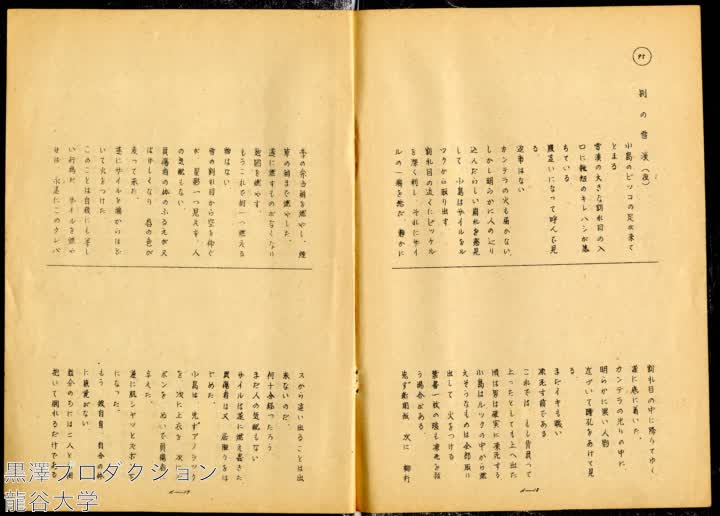 95
別の雪渓(夜)
小島のピッコの足が来て
とまる
雪渓の大きな割れ目の入
口に靴紐のキレハシが落
ちている
腹這いになって呼んで見
る。
返事はない
カンテラの火も届かない。
しかし明らかに人の辷り
込んだらしい崩れを発見
して 小島はザイルをル
ックから取り出す
割れ目の近くにピッケル
を深く刺し それにザイ
ルの一端を結び 静かに
割れ目の中に降りてゆく
遂に底に着いた。
カンテラの光りの中に
明らかに黒い人影
近づいて瞳孔をあけて見
る
まだイキも暖い
凍死寸前である
これでは もし背負って
上ったとしても上へ出た
頃は男は確実に凍死する
小島はルックの中から燃
えそうなものは全部取り
出して 火をつける
葉書一枚の燃も凍死を救
う場合がある。
先ず新聞紙 次に 柳行
李の弁当箱を燃やし、煙
草の箱まで燃やした。
遂に燃すものがなくなり
地図を燃やす。
もうこれで何一つ燃える
物はない
雪の割れ目から空を仰ぐ
が 星影一つ見えず 人
の気配もない。
負傷者の体のふるえが又
ば げしくなり 唇の色が
変って来た。
遂にザイルを端からほど
いて火をつけた
このことは自殺にも等し
い行為だ ザイルを燃や
せば 永遠にこのクレバ
スから這い出ることは出
来ないのだ。
何十分経ったろう
まだ人の気配もない
ザイルは遂に燃え尽きた
負傷者は又 居眠りをは
じめた。
小島は 先ずアノラック
を 次に上衣を 次に
ボンを ぬいで負傷者に
与えた。
遂に肌シャツとズボ
になった。
もう 彼自身 自分の体
に感覚がない
数分のちには二人と
抱いて倒れるだけである
黒澤プロダクション
龍谷大学